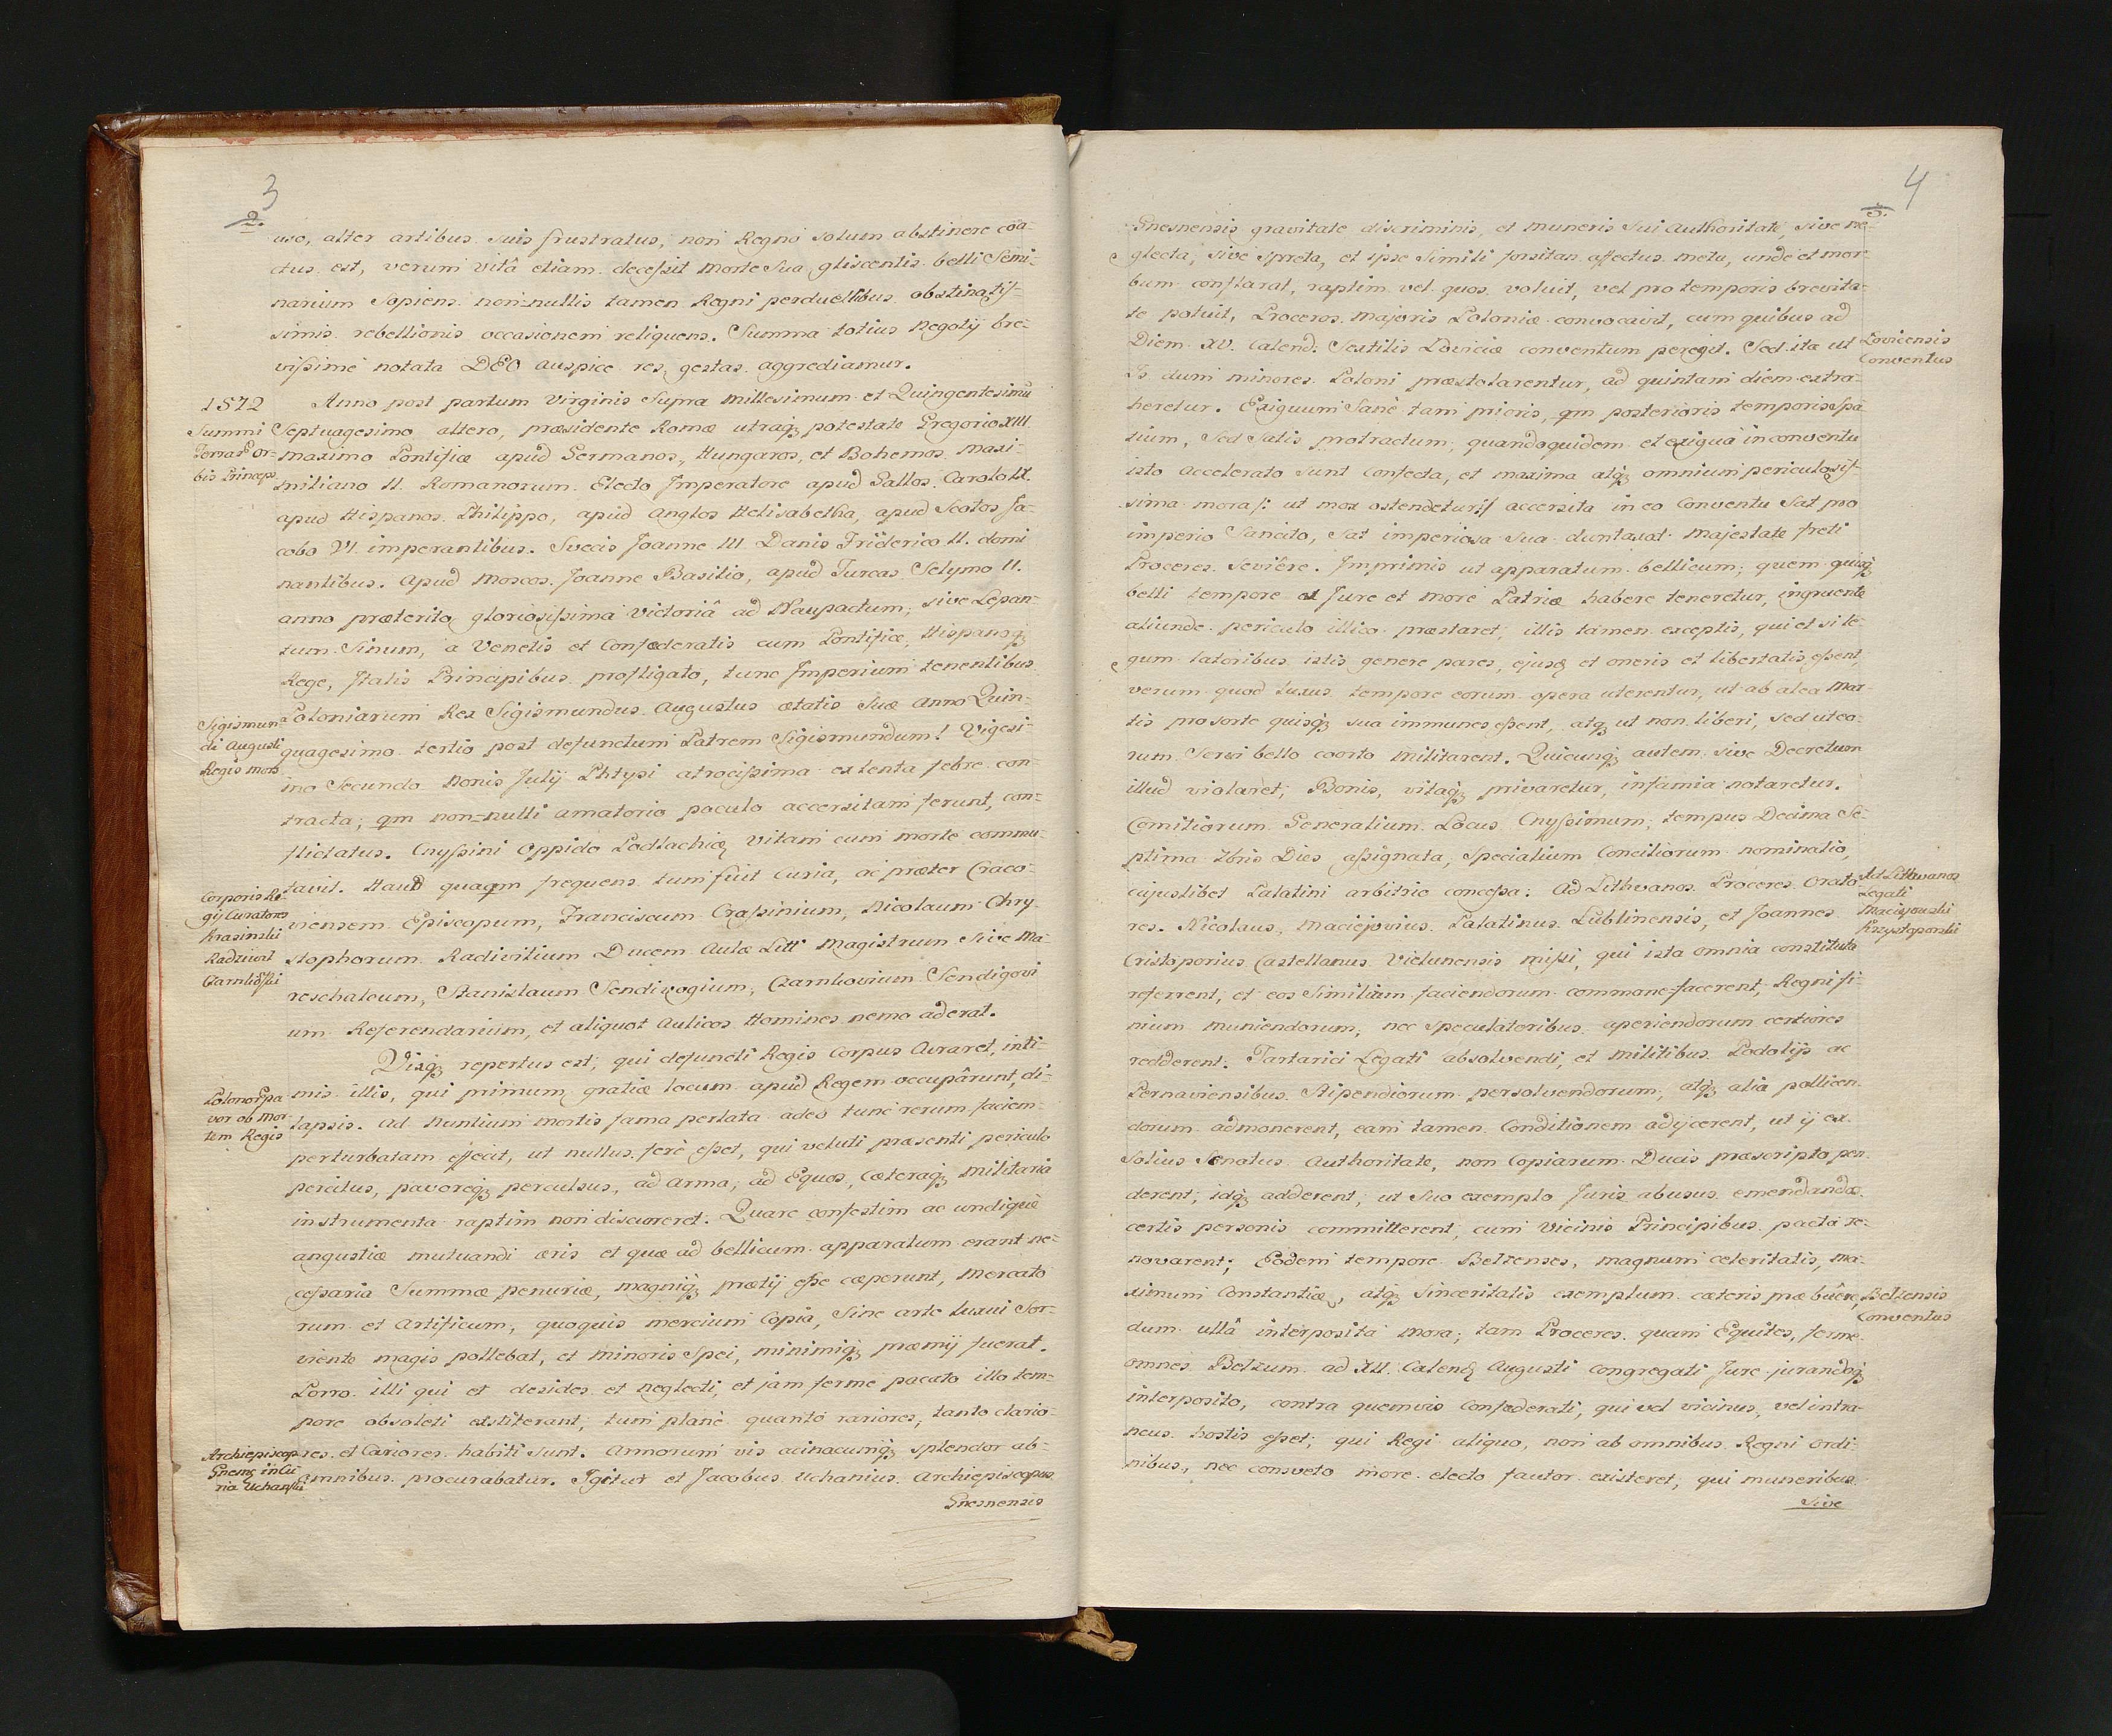 3
2.
uso, alter artibus suis frustratus, non Regno solum abstinere coa-
ctus est, verum vitâ etiam decessit morte sua gliscentis belli Semi-
narium sapiens non=nullis tamen Regni perduellibus obstinatis-
simis rebellionis occasionem reliquens. Summa totius negotij bre-
vissime notata DEO auspice res gestas aggrediamur.
1572
Anno post partum Virginis supra millesimum et Quingentesimũ
Summi Terrarũ Or-
bis Princeps
Septuagesimo altero, præsidente Romæ utraqꝫ potestate Gregorio XIII.
maximo Pontifice apud Germanos, Hungaros, et Bohemos Maxi-
miliano II. Romanorum Electo Imperatore apud Gallos Carolo IX.
apud Hispanos Philippo, apud Anglos Helisabetha, apud Scotos Ja-
cobo VI. imperantibus. Svecis Joanne III Danis Friderico II. domi
nantibus. Apud Moscos Joanne Basilio, apud Turcas Selymo II.
anno præterito gloriosissima victoriâ ad Naupactum, sive Lepan-
tum Sinum, a Venetis et Confœderatis cum Pontifice, Hispanoqꝫ
Rege, Italis Principibus profligato, tunc Imperium tenentibus
Sigismun-
di Augusti
Regis mors
Poloniarum Rex Sigismundus Augustus ætatis suæ Anno Quin-
quagesimo tertio post defunctum Patrem Sigismundum I Vigesi-
mo Secundo Nonis Julij Phtysi atrocissima ex lenta febre con-
tracta; qm non=nulli amatorio poculo accersitam ferunt, con-
flictatus. Cnyssini Oppido Podlachiæ vitam cum morte commu-
tavit. Haud quaqm frequens tum fuit Curia, ac præter Craco-
Corporis Re-
gij Curatores
Krasinski
Radziwil
Czarnkowski
viensem Episcopum, Franciscum Crassinium, Nicolaum Chry-
stophorum Radivilium Ducem Aulæ Litt Magistrum sive Ma-
reschalcum, Stanislaum Sendivogium, Czarnkovium Sendigovi
um Referendarium, et aliquot Aulicos Homines nemo aderat.
Vixqꝫ repertus est; qui defuncti Regis Corpus Curaret, inti-
mis illis, qui primum gratiæ locum apud Regem occupârunt, di-
Polonorũ pa
vor ob mor-
tem Regis
lapsis. Ad Nuntium mortis fama perlata adeo tunc rerum faciem
perturbatam effecit, ut nullus fere esset, qui veluti præsenti periculo
percitus, pavoreqꝫ perculsus, ad arma, ad Equos, cæteraqꝫ militaria
instrumenta raptim non discureret. Quare confestim ac undique
angustiæ mutuandi æris et quæ ad bellicum apparatum erant ne-
cessaria Summæ penuriæ, magniqꝫ prætij esse cæperunt, Mercato
rum et Artificum, quoquis mercium Copia, sine arte luxui ser-
viente magis pollebat, et minoris spei, minimiqꝫ præmij fuerat.
Porro illi qui et desides et neglecti, et jam ferme pacato illo tem-
pore obsoleti extiterant, tum plane quanto rariores, tanto clario-
Archiepiscop.
Gnezn in Cu
ria Uchanski
res et Cariores habiti sunt. Armorum vis acinacumqꝫ splendor ab-
omnibus procurabatur. Igitur et Jacobus Uchanius Archiepiscopus
Gnesnensis
4
3.
Gnesnensis gravitate discriminis, et muneris sui Authoritate, sive ne-
glecta, sive spreta, et ipse simili forsitan affectus metu, unde et mor-
bum conflarat, raptim vel quos voluit, vel pro temporis brevita-
te potuit, Proceres majoris Poloniæ convocavit, cum quibus ad
Diem XV. Calend: Sextilis Loviciæ conventum peregit. Sed ita ut
Lovicensis
Conventus
Is dum minores Poloni præstolarentur, ad quintam diem extra-
heretur. Exiguum Sane tam prioris, qm posterioris temporis spa-
tium, sed satis protractum, quandoquidem et exigua in conventu
isto accelerato sunt confecta, et maxima atqꝫ omnium periculosis-
sima mora /: ut mox ostendetur :/ accersita in eo Conventu sat pro
imperio Sancito, sat imperiosa sua duntaxat Majestate freti
Proceres seviêre. Imprimis ut apparatum bellicum, quem quisqꝫ
belli tempore et Jure et more Patriæ habere teneretur, ingruente
aliunde periculo illico præstaret, illis tamen exceptis, qui etsi le-
gum latoribus istis genere pares, ejusqꝫ et oneris et libertatis essent,
verum quod luxus tempore eorum opera uterentur, ut ab alea Mar-
tis pro sorte quisqꝫ sua immunes essent, atqꝫ ut non liberi, sed ut eo-
rum Servi bello coorto militarent. Quicunqꝫ autem sive Decretum
illud violaret, Bonis, vitaqꝫ privaretur, infamia notaretur.
Comitiorum Generalium Locus Cnyssimum, tempus Decima Se-
ptima 7bris Dies assignata, Specialium Conciliorum nominatio,
cujuslibet Palatini arbitrio concessa. Ad Lithvanos Proceres Orato-
Ad Lithvanos
Legati
Maciejowski
Krzysztoporski
res Nicolaus, Maciejovius Palatinus Lublinensis, et Joannes
Cristoporius Castellanus Vielunensis missi, qui ista omnia constituta
referrent, et eos similium faciendorum commone=facerent, Regni fi-
nium muniendorum, nec speculatoribus aperiendorum certiores
redderent. Tartarici Legati absolvendi, et militibus Podolijs ac
Pernaviensibus Stipendiorum persolvendorum, atqꝫ alia pollicen-
dorum admonerent, eam tamen Conditionem adijcerent, ut ij ex
solius Senatus Authoritate, non Copiarum Ducis præscripto pen-
derent, idqꝫ adderent, ut suo exemplo Juris abusus emendandos
certis personis committerent, cum Vicinis Principibus pacta re-
novarent; Eodem tempore Belzenses, magnum celeritatis, ma-
ximum Constantiæ, atqꝫ sinceritatis exemplum cæteris præbuêre,
Belzensis
Conventus
dum ullâ interposita mora, tam Proceres quam Equites, ferme
omnes Belzum ad XII. Calend Augusti congregati Jure jurandoqꝫ
interposito, contra quemvis Confœderati, qui vel vicinus, vel intra-
neus hostis esset, qui Regi aliquo, non ab omnibus Regni Ordi-
nibus, nec consveto more electo fautor existeret, qui muneribus
sive